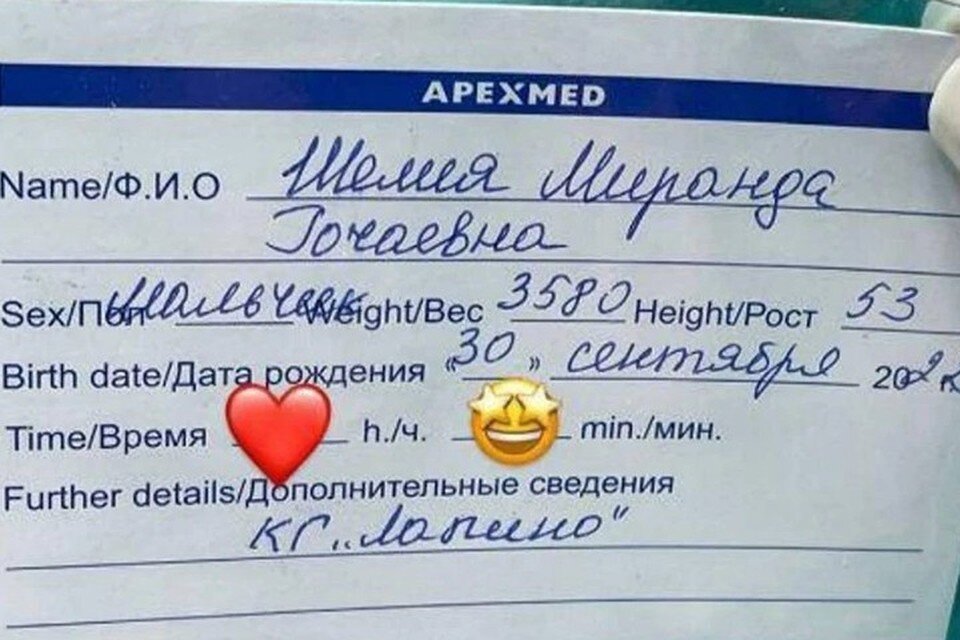 APEXMED
Name/Ф.И.О Шелия Миранда
Гочаевна
Sex/Пол Мальчик Weight/Вес 3580 Height/Рост 53
Birth date/Дата рождения «30» сентября 202
Time/Время h./ч. min./мин.
Further details/Дополнительные сведения
КГ „Лапино"